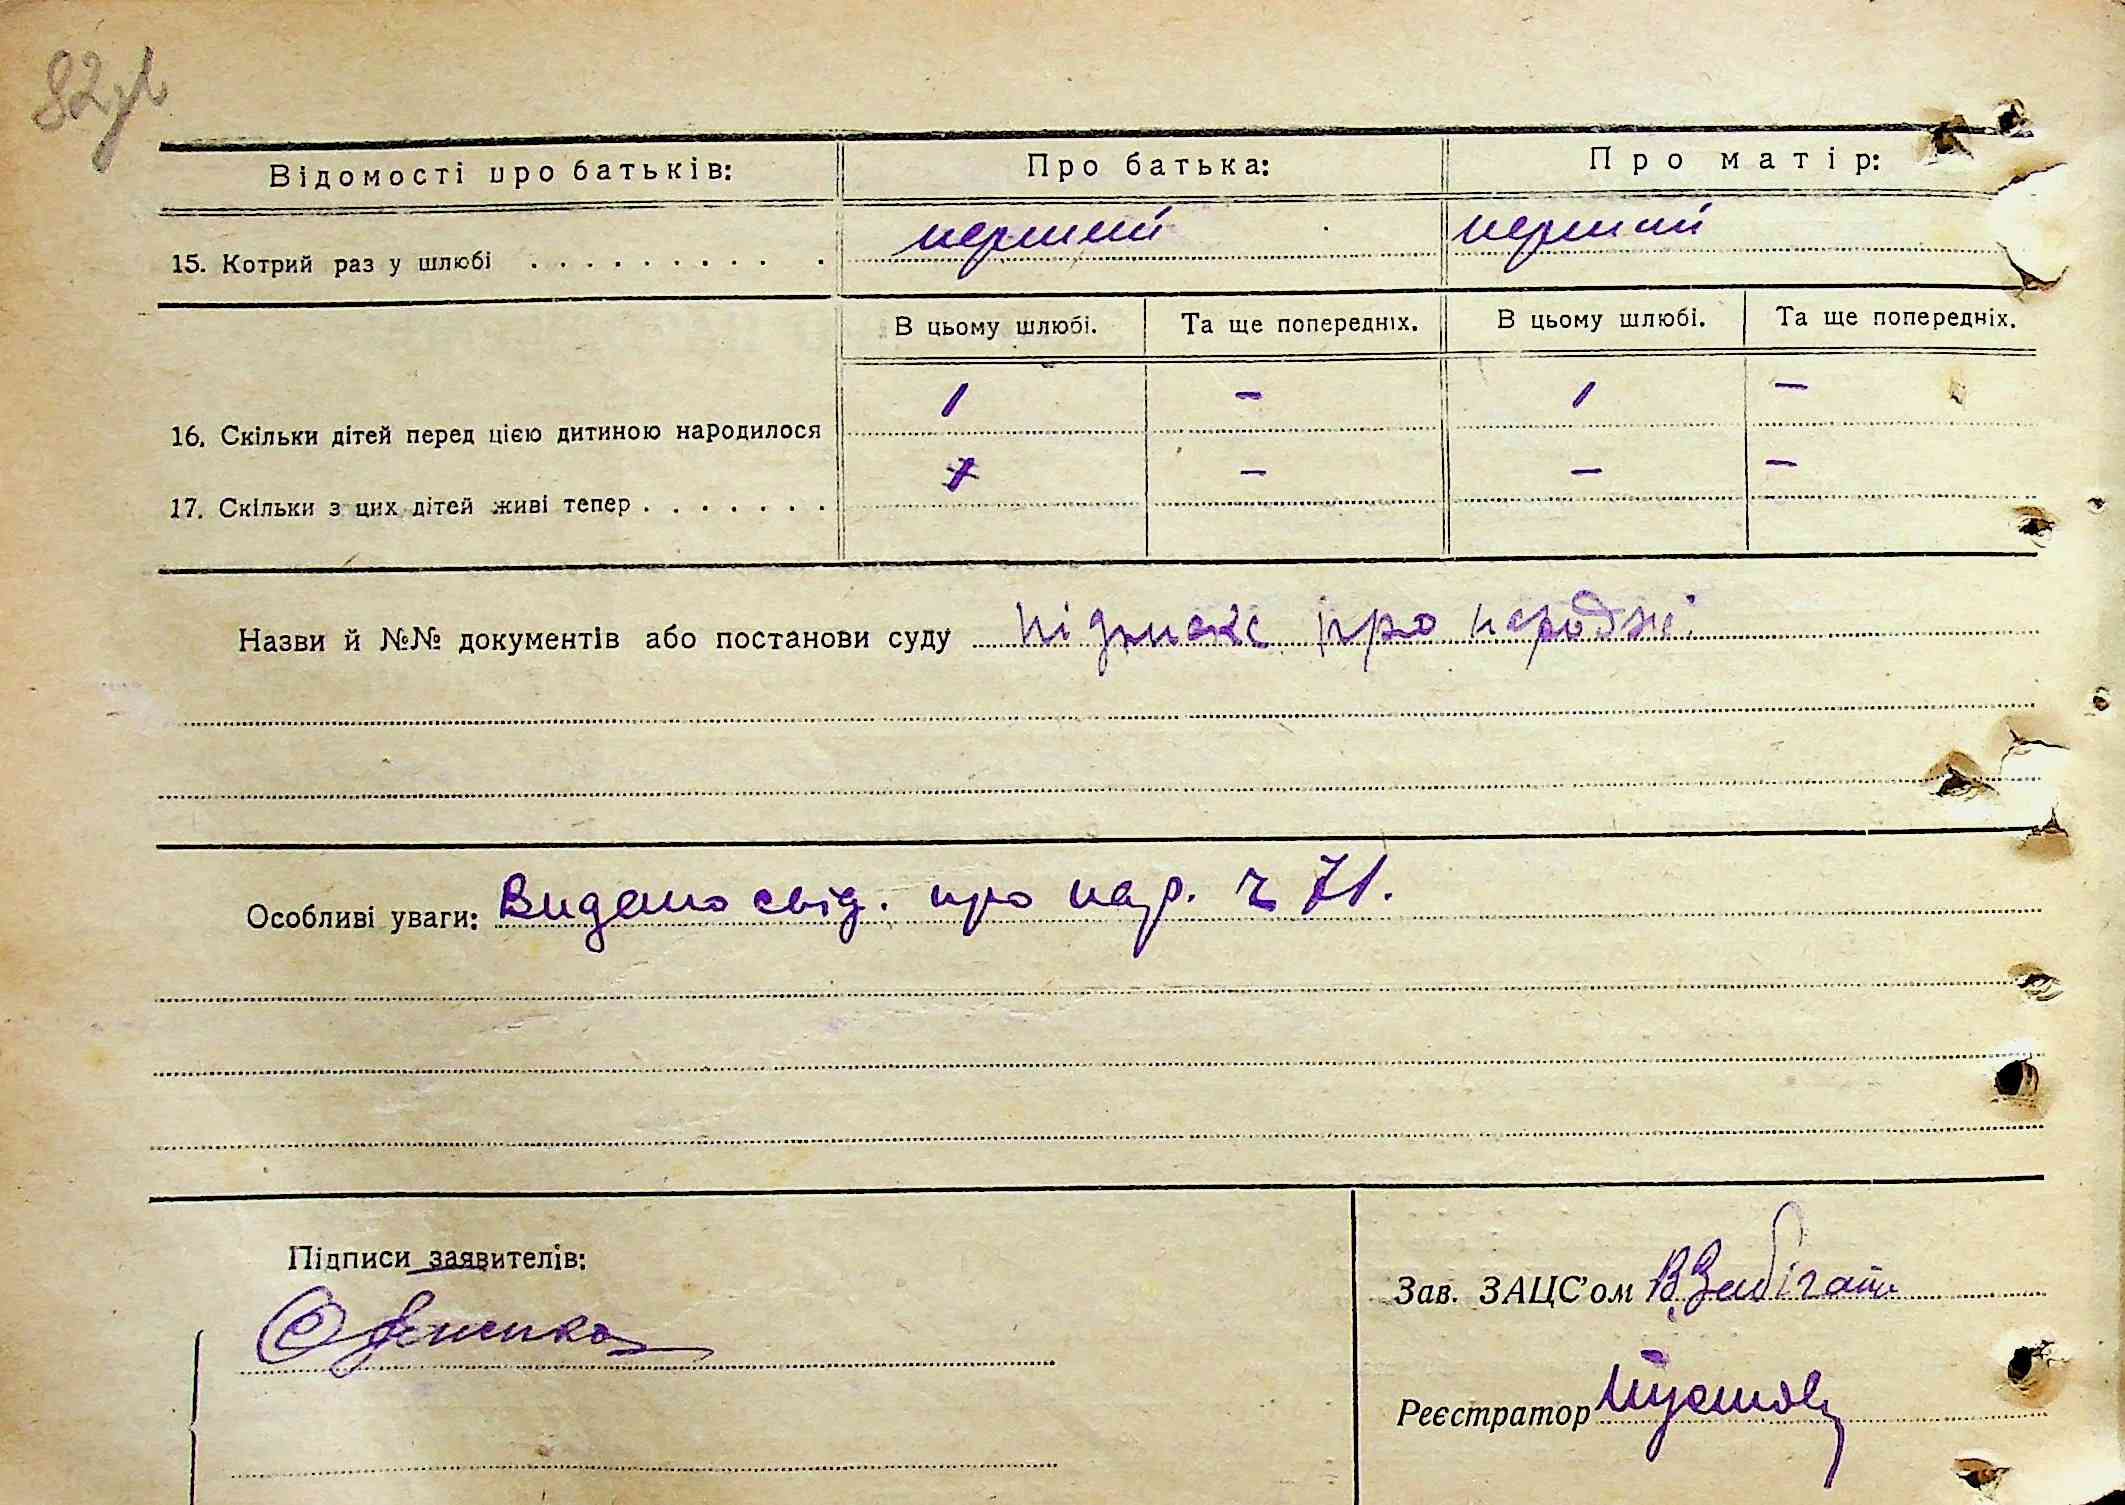 82
Відомості про батьків: Про батька: Про матір:
15. Котрий раз у шлюбі . . . . . . . . . . . перший перший
В цьому шлюбі. Та ще попередніх. В цьому шлюбі. Та ще попередніх.
16. Скільки дітей перед цією дитиною народилося 1 – 1 –
17. Скільки з цих дітей живі тепер . . . . . . . – – –
Назви й №№ документів або постанови суду про
Особливі уваги: Видано свід. про нар. ч 71.
Підписи заявителів:
Зав. ЗАЦС'ом
Реєстратор